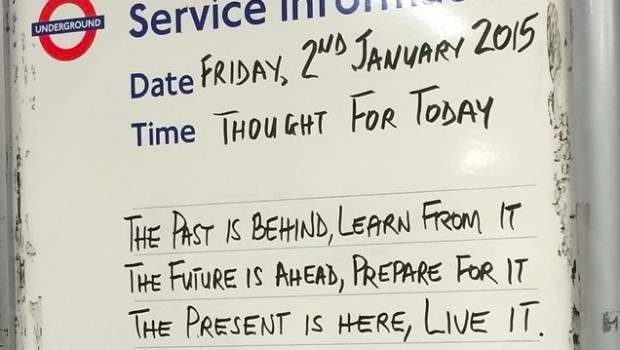 UNDERGROUND
Service
Date FRIDAY, 2ND JANUARY 2015
Time THOUGHT FOR TODAY
THE PAST IS BEHIND, LEARN FROM IT
THE FUTURE IS AHEAD, PREPARE FOR IT
THE PRESENT IS HERE, LIVE IT.